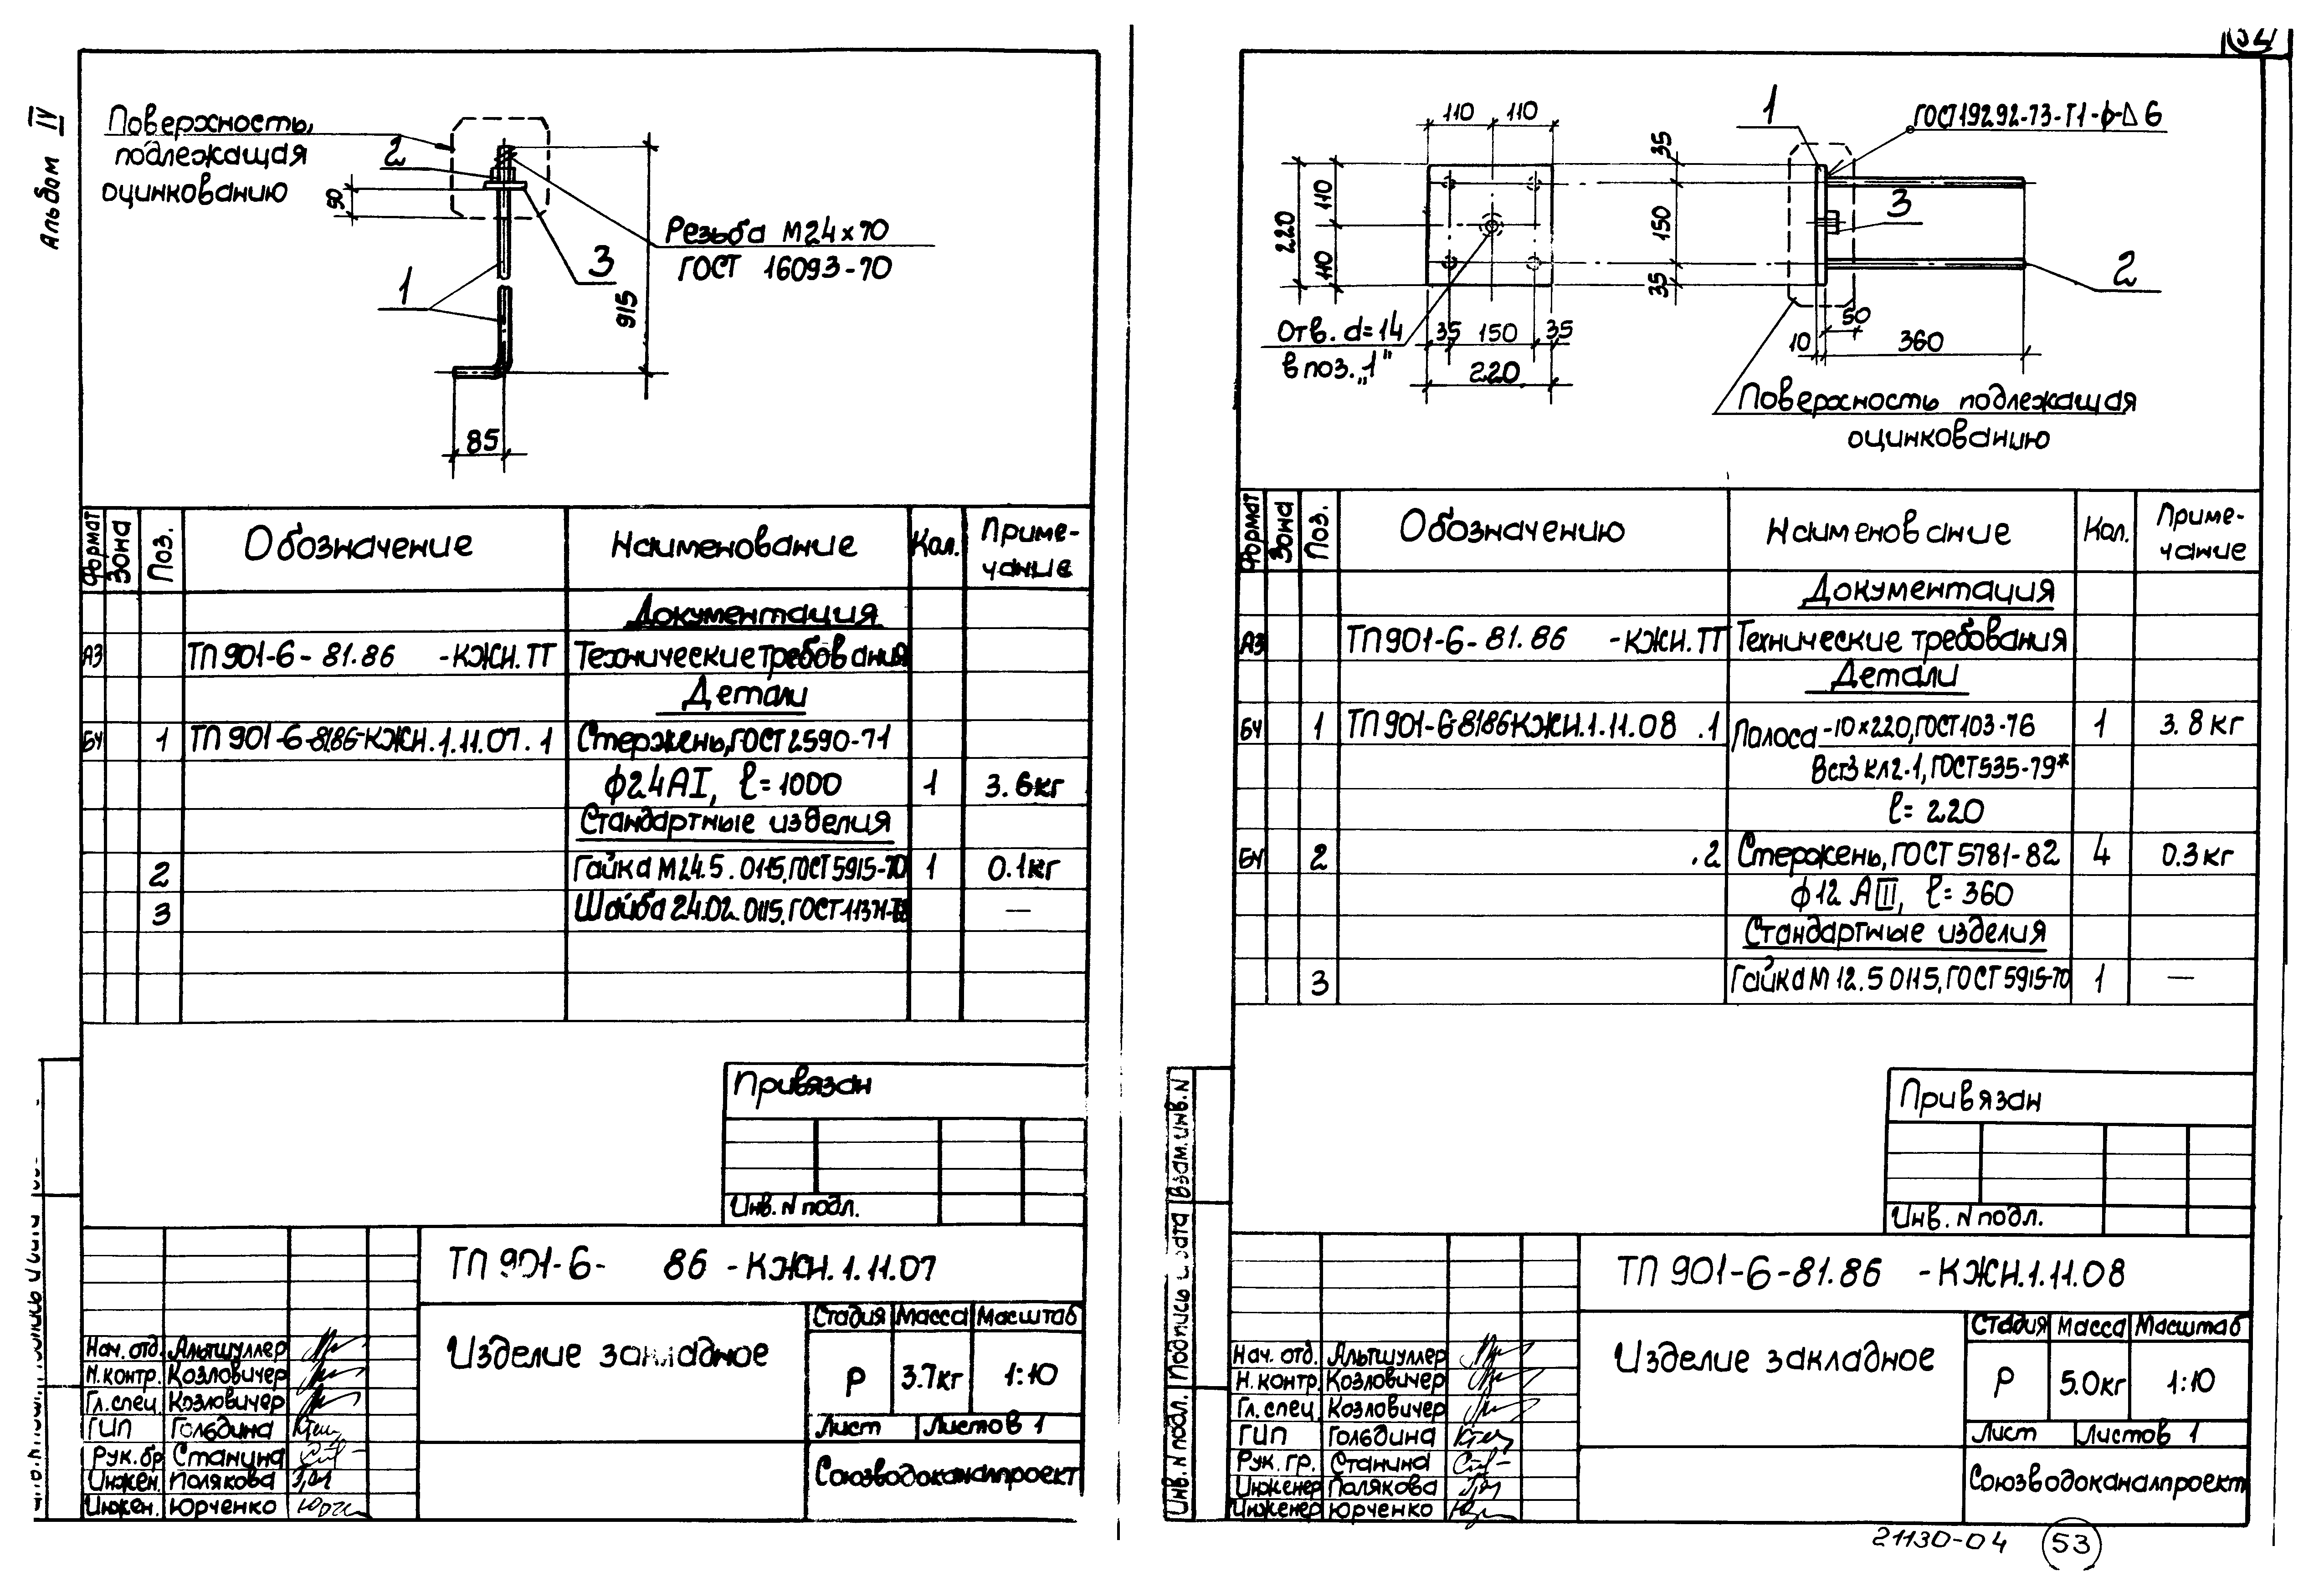 Альбом IV
Поверхность,
подлежащая
оцинкованию
2
50
Резьба М24×70
ГОСТ 16093-70
3
1
915
85
Формат Зона Поз. Обозначение Наименование Кол. Приме-
чание
Документация
А3 ТП901-6-81.86 -КЖН.ТТ Технические требования
Детали
БЧ 1 ТП901-6-81.86-КЖН.1.11.07.1 Стержень, ГОСТ 2590-71
ϕ24АI, ℓ=1000 1 3.6кг
Стандартные изделия
2 Гайка М24.5.0115, ГОСТ 5915-70 1 0.1кг
3 Шайба 24.02.0115, ГОСТ 11371-78 —
Привязан
Инв. N подл.
ТП 901-6- 86 -КЖН.1.11.07
Изделие закладное
Стадия Масса Масштаб
Р 3.7кг 1:10
Лист Листов 1
Союзводоканалпроект
Нач. отд. Альтшуллер
Н.контр. Козловичер
Гл.спец. Козловичер
ГИП Гольдина
Рук.бр Станина
Инжен. Полякова
Инжен. Юрченко
110 110
1
ГОСТ 19292-73-Т1-ф-Δ 6
35
110
220
150
3
110
35
2
Отв. d=14
в поз. „1"
35 150 35
220
50
10 360
Поверхность подлежащая
оцинкованию
Формат Зона Поз. Обозначению Наименование Кол. Приме-
чание
Документация
А3 ТП901-6-81.86 -КЖН.ТТ Технические требования
Детали
БЧ 1 ТП901-6-8186КЖН.1.11.08 .1 Полоса -10×220, ГОСТ 103-76 1 3.8кг
Вст3 кл2-1, ГОСТ 535-79*
ℓ=220
БЧ 2 .2 Стержень, ГОСТ 5781-82 4 0.3кг
ϕ12 АIII, ℓ=360
Стандартные изделия
3 Гайка М 12.5 0115, ГОСТ 5915-70 1 —
Привязан
Инв. N подл.
Взам.инв.N
Подпись и дата
Инв.N подл.
ТП 901-6-81.86 -КЖН.1.11.08
Изделие закладное
Стадия Масса Масштаб
Р 5.0кг 1:10
Лист Листов 1
Союзводоканалпроект
Нач. отд. Альтшуллер
Н.контр. Козловичер
Гл.спец. Козловичер
ГИП Гольдина
Рук. гр. Станина
Инженер Полякова
Инженер Юрченко
21130-04 53